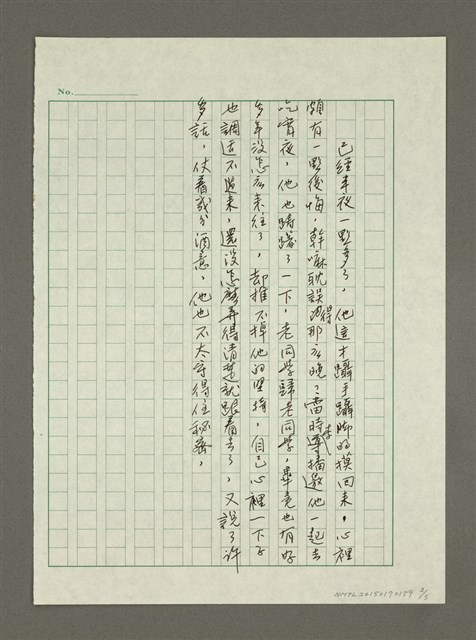 No.
已經半夜一點多了，他這才躡手躡脚的摸回來，心裡
頗有一點後悔，幹嘛耽誤得那麼晚？當時李播邀他一起去
吃宵夜，他也躊躇了一下，老同學歸老同學，畢竟也有好
多年沒怎麼來往了，却推不掉他的堅持，自己心裡一下子
也調适不過來，還沒怎麼弄得清楚就跟着去了，又說了許
多話，仗着幾分酒意，他也不太守得住秘密，
NMTL20150170159 2/3